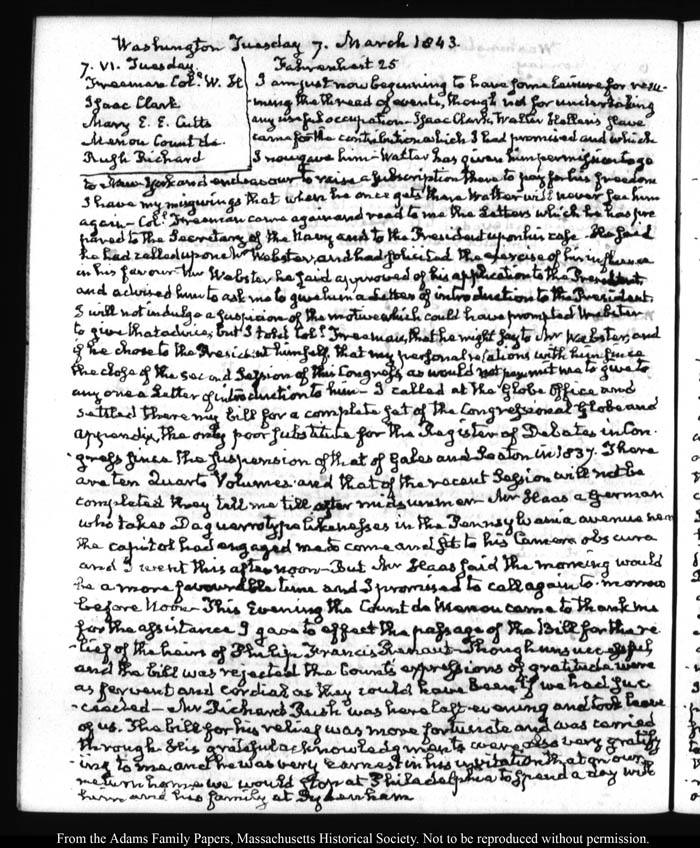 Washington Tuesday 7. March 1843.
7. VI. Tuesday.
Freeman Colł. W. H
Isaac Clark
Mary E. E. Cutts
Menou Count de.
Rush Richard
Fahrenheit 25
I am just now beginning to have some leisure for resu-
ming the thread of events, though not for undertaking
any useful occupation. Isaac Clark, Walter Hellen's slave
came for the contribution which I had promised and which
I now gave him - Walter has given him permission to go
to New-York and endeavour to raise a subscription there to pay for his freedom
I have my misgivings that when he once gets there Walter will never see him
again - Colł. Freeman came again and read to me the Letters which he has pre
pared to the Secretary of the Navy and to the President upon his case. He said
he had called upon Mr Webster, and had solicited the exercise of his influence
in his favour. Mr Webster he said approved of his application to the President,
and advised him to ask me to give him a Letter of introduction to the President.
I will not indulge a suspicion of the motive which could have prompted Webster
to give that advice, but I told Colł. Freeman, that he might say to Mr Webster, and
if he chose to the President himself, that my personal relations with him since
the close of the second Session of this Congress, as would not permit me to give to
any one a Letter of introduction to him - I called at the Globe Office and
settled there my bill for a complete set of the Congressional Globe and
appendix, the only poor substitute for the Register of Debates in Con-
gress since the suspension of that of Gales and Seaton in 1837. There
are ten Quarto Volumes and that of the recent Session will not be
completed they tell me till after midsummer - Mr Haas a German
who takes Daguerrotype likenesses in the Pennsylvania avenue near
the capitol had engaged me to come and sit to his Camera obscura
and I went this afternoon - But Mr Haas said the morning would
be a more favourable time and I promised to call again to-morrow
before Noon - This Evening the Count de Menou came to thank me
for the assistance I gave to effect the passage of the Bill for the re
lief of the heirs of Philip Francis Renaut - Though unsuccessful
and the bill was rejected the Count's expressions of gratitude were
as fervent and cordial as they could have been if we had suc
-ceeded - Mr Richard Rush was here last evening and took leave
of us. The bill for his relief was more fortunate and was carried
through. His grateful acknowledgments were also very gratify
ing to me, and he was very earnest in his invitation that on our
return home we would stop at Philadelphia to spend a day with
him and his family at Sydenham
From the Adams Family Papers, Massachusetts Historical Society. Not to be reproduced without permission.